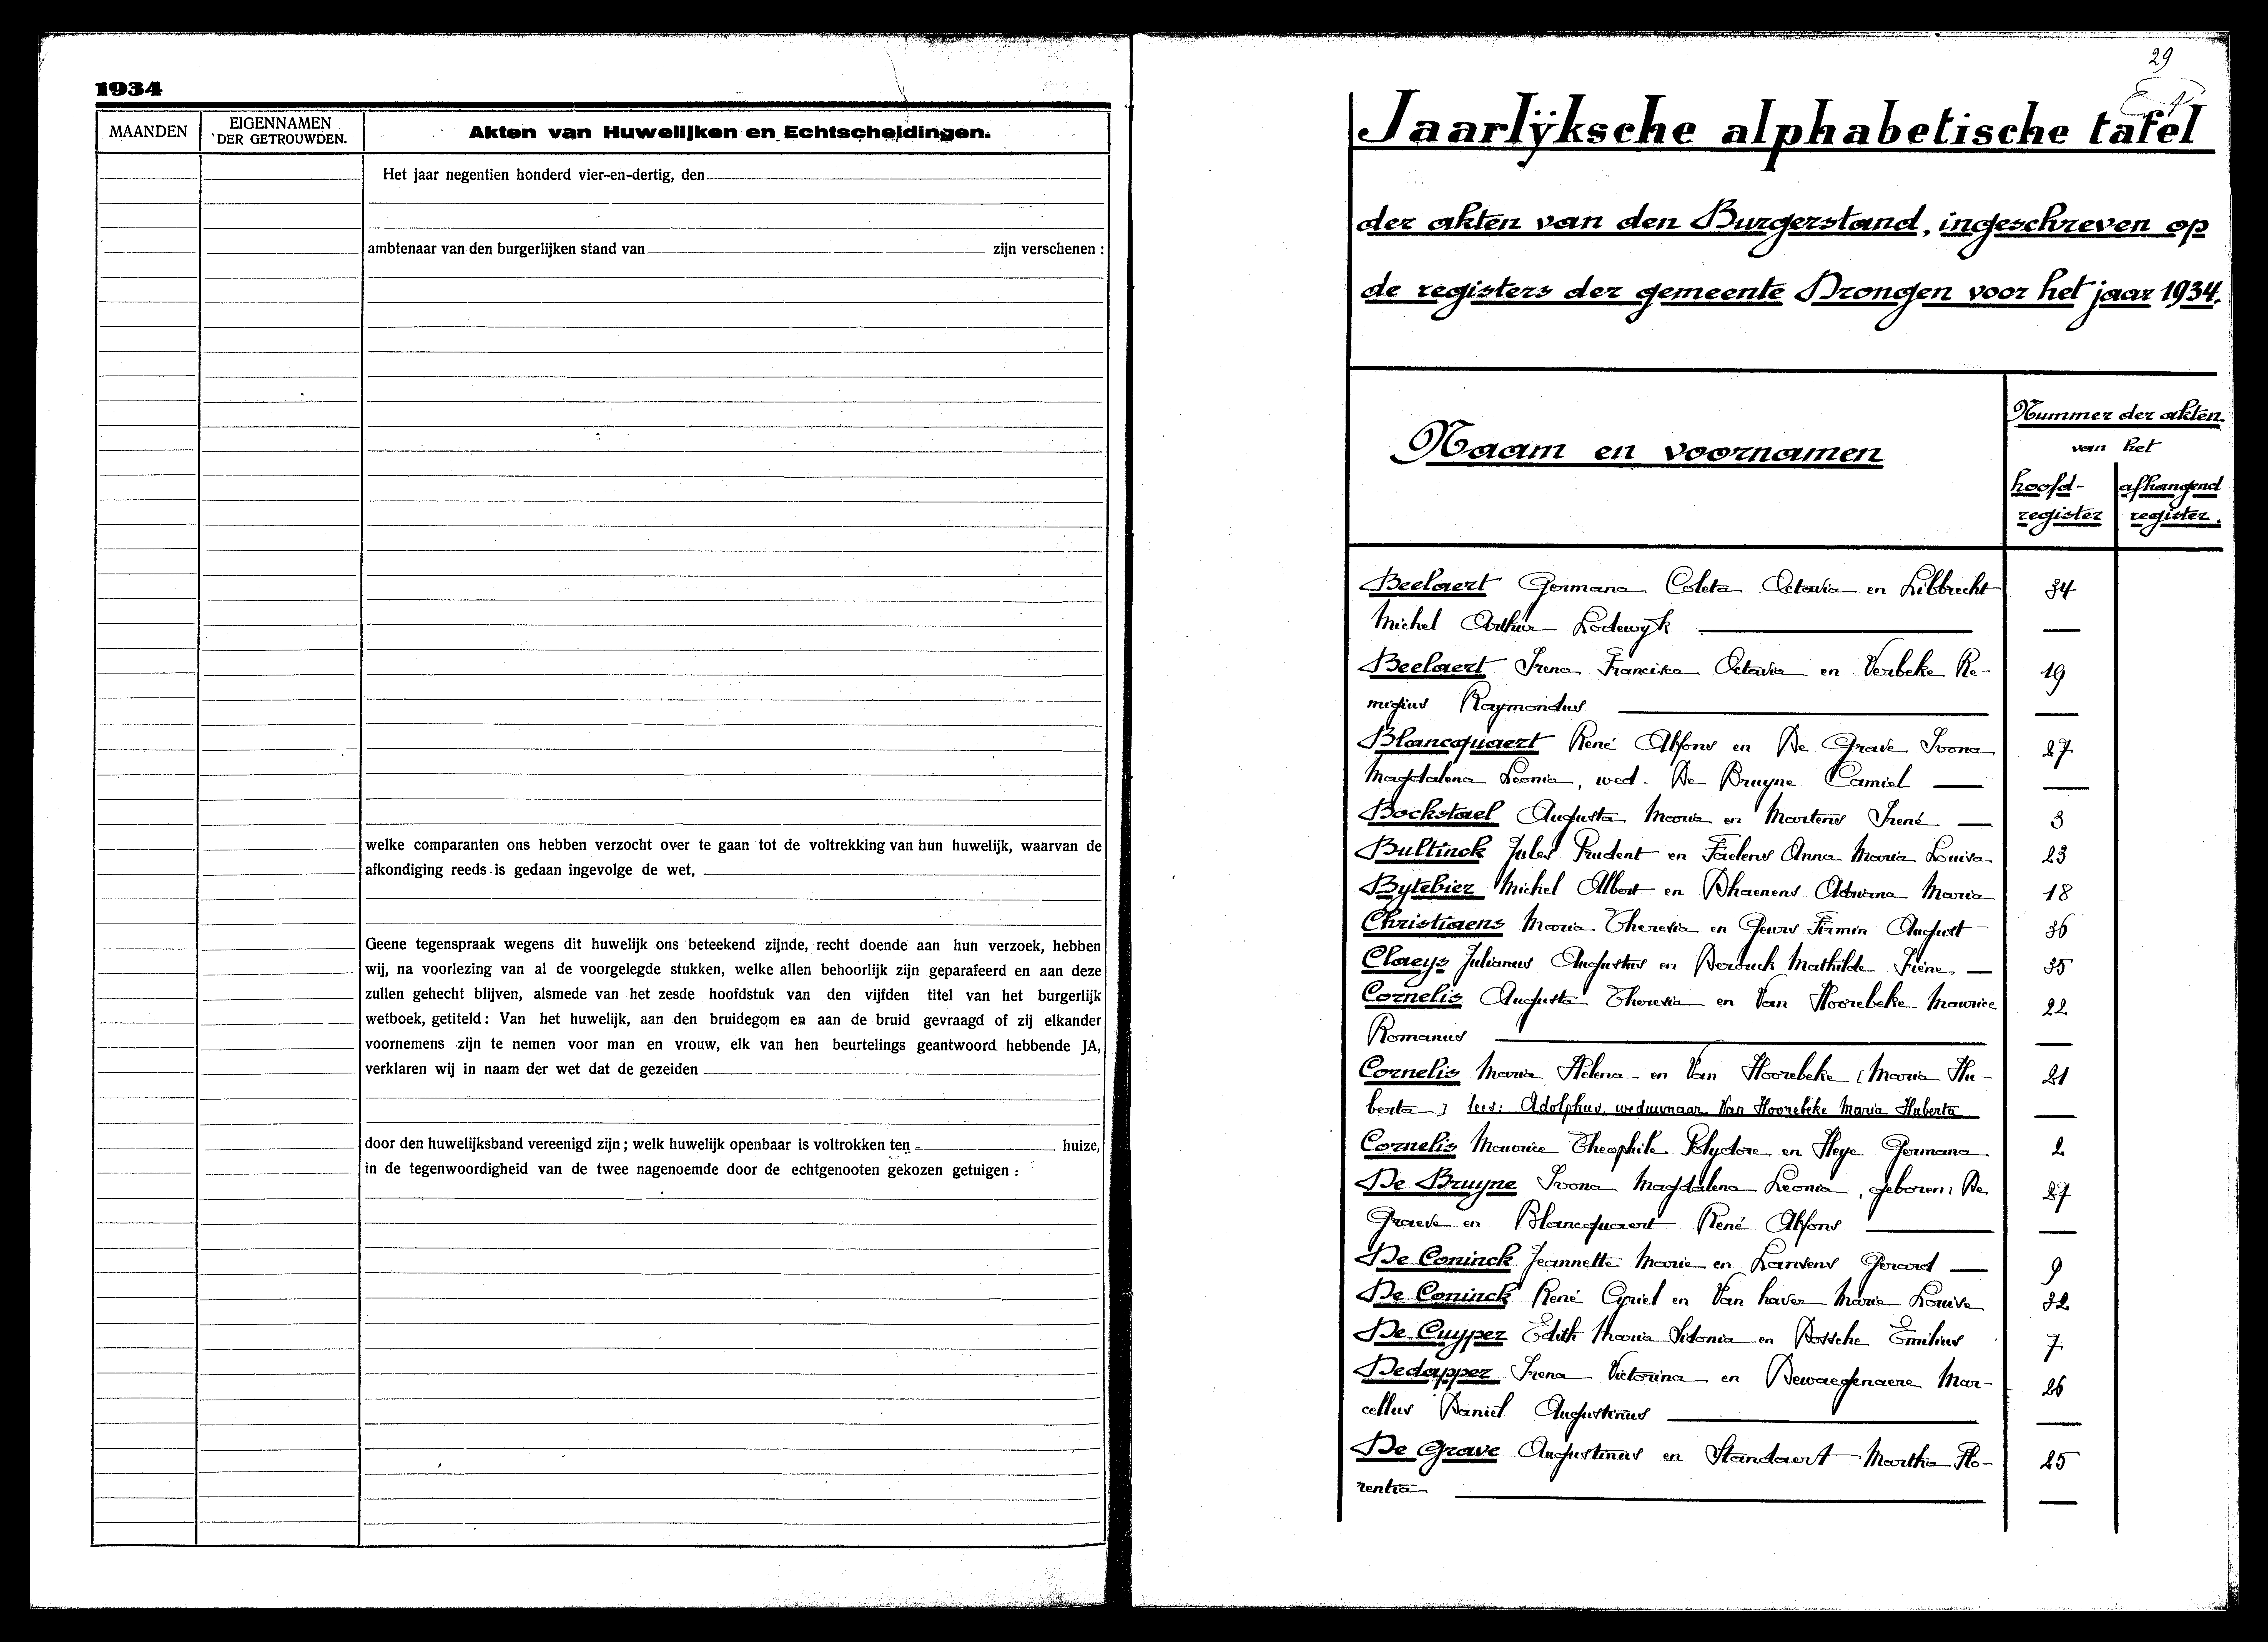 1934
MAANDEN
EIGENNAMEN
DER GETROUWDEN.
Akten van Huwelijken en Echtscheidingen.
Het jaar negentien honderd vier-en-dertig, den
ambtenaar van den burgerlijken stand van zijn verschenen :
welke comparanten ons hebben verzocht over te gaan tot de voltrekking van hun huwelijk, waarvan de
afkondiging reeds is gedaan ingevolge de wet,
Geene tegenspraak wegens dit huwelijk ons beteekend zijnde, recht doende aan hun verzoek, hebben
wij, na voorlezing van al de voorgelegde stukken, welke allen behoorlijk zijn geparafeerd en aan deze
zullen gehecht blijven, alsmede van het zesde hoofdstuk van den vijfden titel van het burgerlijk
wetboek, getiteld : Van het huwelijk, aan den bruidegom en aan de bruid gevraagd of zij elkander
voornemens zijn te nemen voor man en vrouw, elk van hen beurtelings geantwoord hebbende JA,
verklaren wij in naam der wet dat de gezeiden
door den huwelijksband vereenigd zijn ; welk huwelijk openbaar is voltrokken ten huize,
in de tegenwoordigheid van de twee nagenoemde door de echtgenooten gekozen getuigen :
29
Jaarlijksche alphabetische tafel
der akten van den Burgerstand, ingeschreven op
de registers der gemeente Drongen voor het jaar 1934.
Naam en voornamen
Nummer der akten
van het
hoofd-
register
afhangend
register.
Beelaert Germana Coleta Octavia en Libbrecht 34
Michel Arthur Lodewyk —
Beelaert Irena Francisca Octavia en Verbeke Re- 19
migius Raymondus —
Blancquaert René Alfons en De Grave Ivona 27
Magdalena Leonia, wed. De Bruyne Camiel —
Bockstael Augusta Maria en Martens Irené — 3
Bultinck Jules Prudent en Faelens Anna Maria Louisa 23
Bytebier Michel Albert en Dhaenens Adriana Maria 18
Christiaens Maria Theresia en Geurs Firmin August 36
Claeys Julianus Augustus en Mathilde Irène — 35
Cornelis Augusta Theresia en Van Hoorebeke Maurice 22
Romanus —
Cornelis Maria Helena en Van Hoorebeke (Maria Hu- 21
berta) lees: Adolphus, weduwnaar Van Hoorebeke Maria Huberta —
Cornelis Maurice Theophile Polydore en Heye Germana 2
De Bruyne Ivona Magdalena Leonia, geboren: De 27
Graeve en Blancquaert René Alfons —
De Coninck Jeannette Marie en Lansens Gerard — 9
De Coninck René Cyriel en Van haver Maria Louise 32
De Cuyper Edith Maria Sidonia en Bossche Emilius 7
Dedapper Irena Victorina en Dewaegenaere Mar- 26
cellus Daniel Augustinus —
De Grave Augustinus en Standaert Martha Flo- 25
rentia —